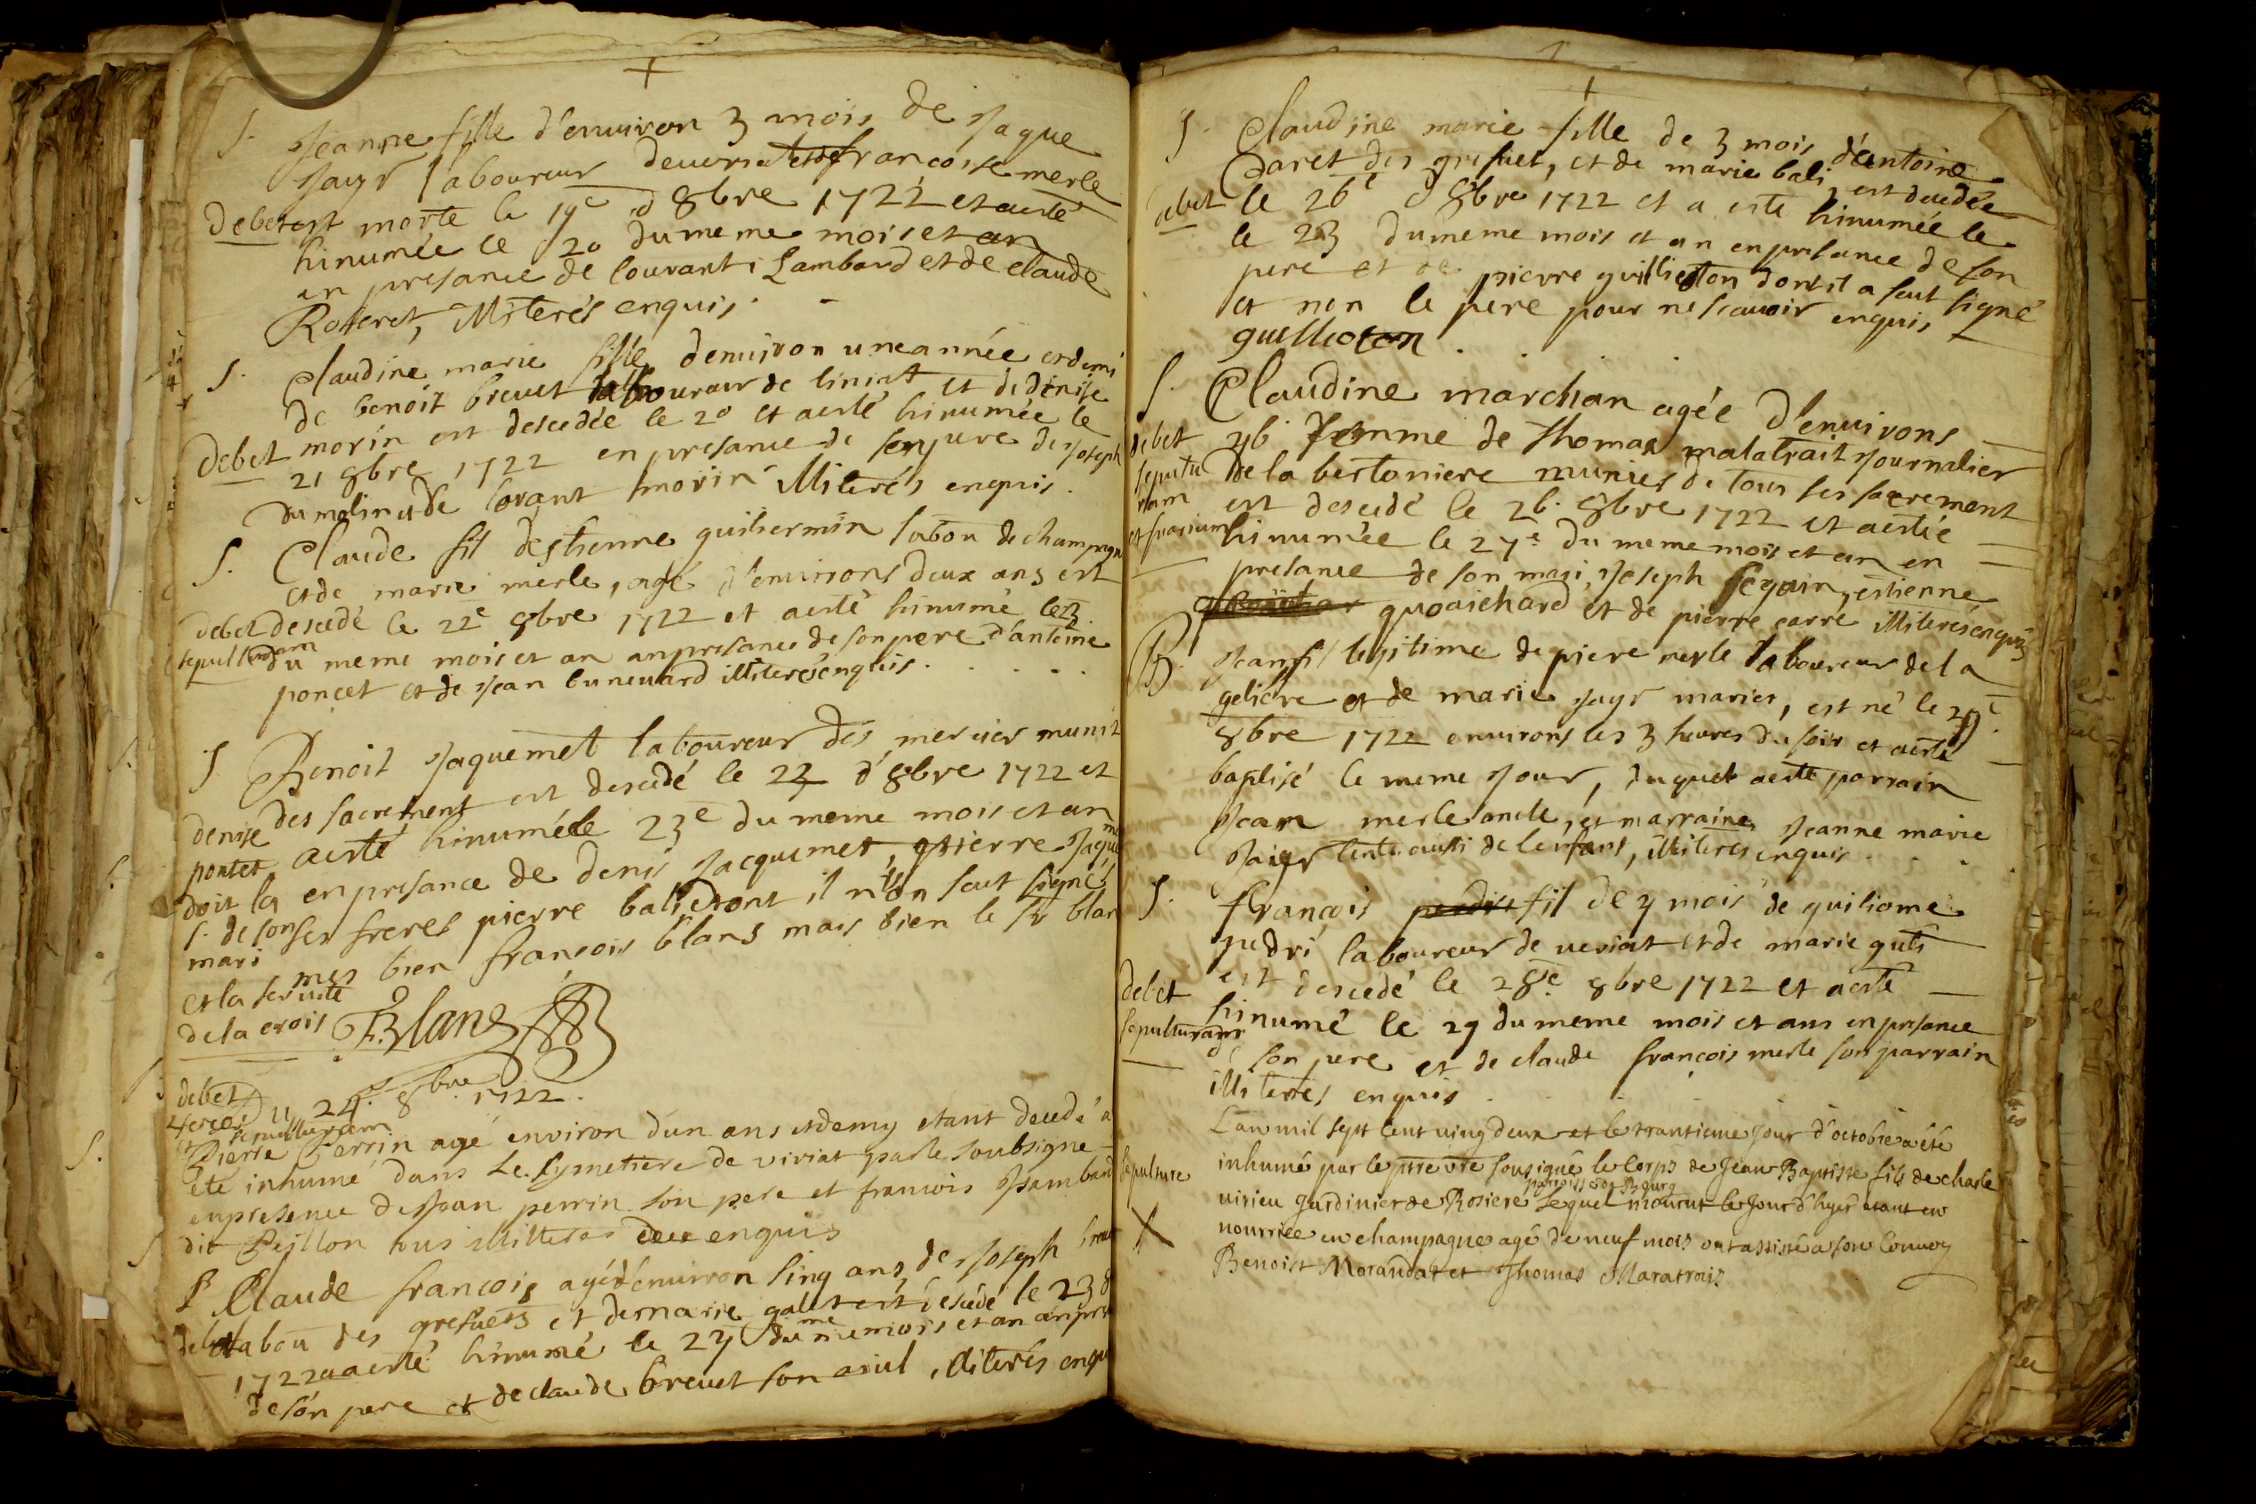 S. Jeanne fille d'enuiron 3 mois de Jaque
Jayr laboureur deueria francoise merle
debet est morte le 19e d 8bre 1722 et aesté
hinumée le 20 du meme mois et an
en presance de lourant i Lambard et de claude
Roteret, illiterés enquis.
S. Claudine marie fille denuiron une année et demi
de benoit breuet laboureur de liniat et de denise
debet morin est descedée le 20 et aesté hinumée le
21 8bre 1722 en presance de son pere de Joseph
du molin et de lorant morin illiterés enquis.
S. Claude fil destienne guilliermin labou de champagn
et de marie merle, agé d'enuirons deux ans est
debet descedé le 22e 8bre 1722 et aesté hinumé le 23
sepulturam du meme mois et an an presance de son pere d'antoine
poncet et de Jean buneuard illiterés enquis.
S Benoit Jaquemet laboureur des mercier munit
des sacrement est descedé le 22 d'8bre 1722 et
aesté hinumé le 23e du meme mois et an
en presance de denis Jacquemet, pierre Jaqueme
ses freres pierre bali dont il n'on seut signés
mes bien francois blanz mais bien le sr blan
denise
pontet
doit la
s. de son
mari
et la serviete
de la crois
F. Blanz
debet
Du 24. 8bre 1722.
sepulturam
S. Pierre Perrin agé environ d'un ans et demy etant decedé a
eté inhumé dans Le Cymetiere de viriat par le soubsigné
en presence de Jean perrin son pere et francois Jambard
dit Peillon tous illitteres enquis
S Claude francois agé d'enuiron sinq ans de Joseph breu
debet labou des grefuets et de marie galet est descedé le 23 8
1722 et aesté hinumé le 24 du meme mois et an an pre
de son pere et de claude breuet son aiul, illiterés enqui
S. Claudine marie fille de 3 mois d'antoine
daret des grefuet, et de marie bali, est decedée
debet le 26e d 8bre 1722 et a esté hinumée le
le 23 du meme mois et an en presance de son
pere et de pierre guillioton dont il a seut signé
et non le pere pour ne scauoir enquis
guillioton
S. Claudine marchan agée d'enuirons
debet 46 femme de thomas malatrait Journalier
sepulturam de la bertoniere munies de tous ses sacrement
est descedé le 26. 8bre 1722 et aestée
hinumée le 27e du meme mois et an en
presance de son mari, Joseph seguin, estienne
quoaichard et de pierre carré illiterés enquis
B. Jean fil legitime de piere merle laboureur de la
geliere et de marie Jayr maries, est né le 27e
8bre 1722 enuirons les 3 heures du soir et aesté
baptisé le meme Jour, duquel aesté parrain
Jean merle oncle, et marraine Jeanne marie
Jaier tente aussi de lenfans, illiteres enquis
S. francois fil de 7 mois de guiliome
pedri laboureur de ueriat et de marie guti
est descedé le 28e 8bre 1722 et aesté
debet hinumé le 29 du meme mois et ans en presance
sepulturam de son pere et de claude francois merle son parrain
illiteres enquis.
L'an mil sept cent ving deux et le trantieme Jour d'octobre a été
sepulture inhumé par le pretre sousigné le Corps de Jean Baptiste fils de charle
paroisse de Bourg
uirieu Jardinier de Rosiere Lequel mourut le Jour d'hyer etant en
nourrice en champagne agé de neuf mois ont assisté a son Convoy
Benoist Morandat et Thomas Maratrait